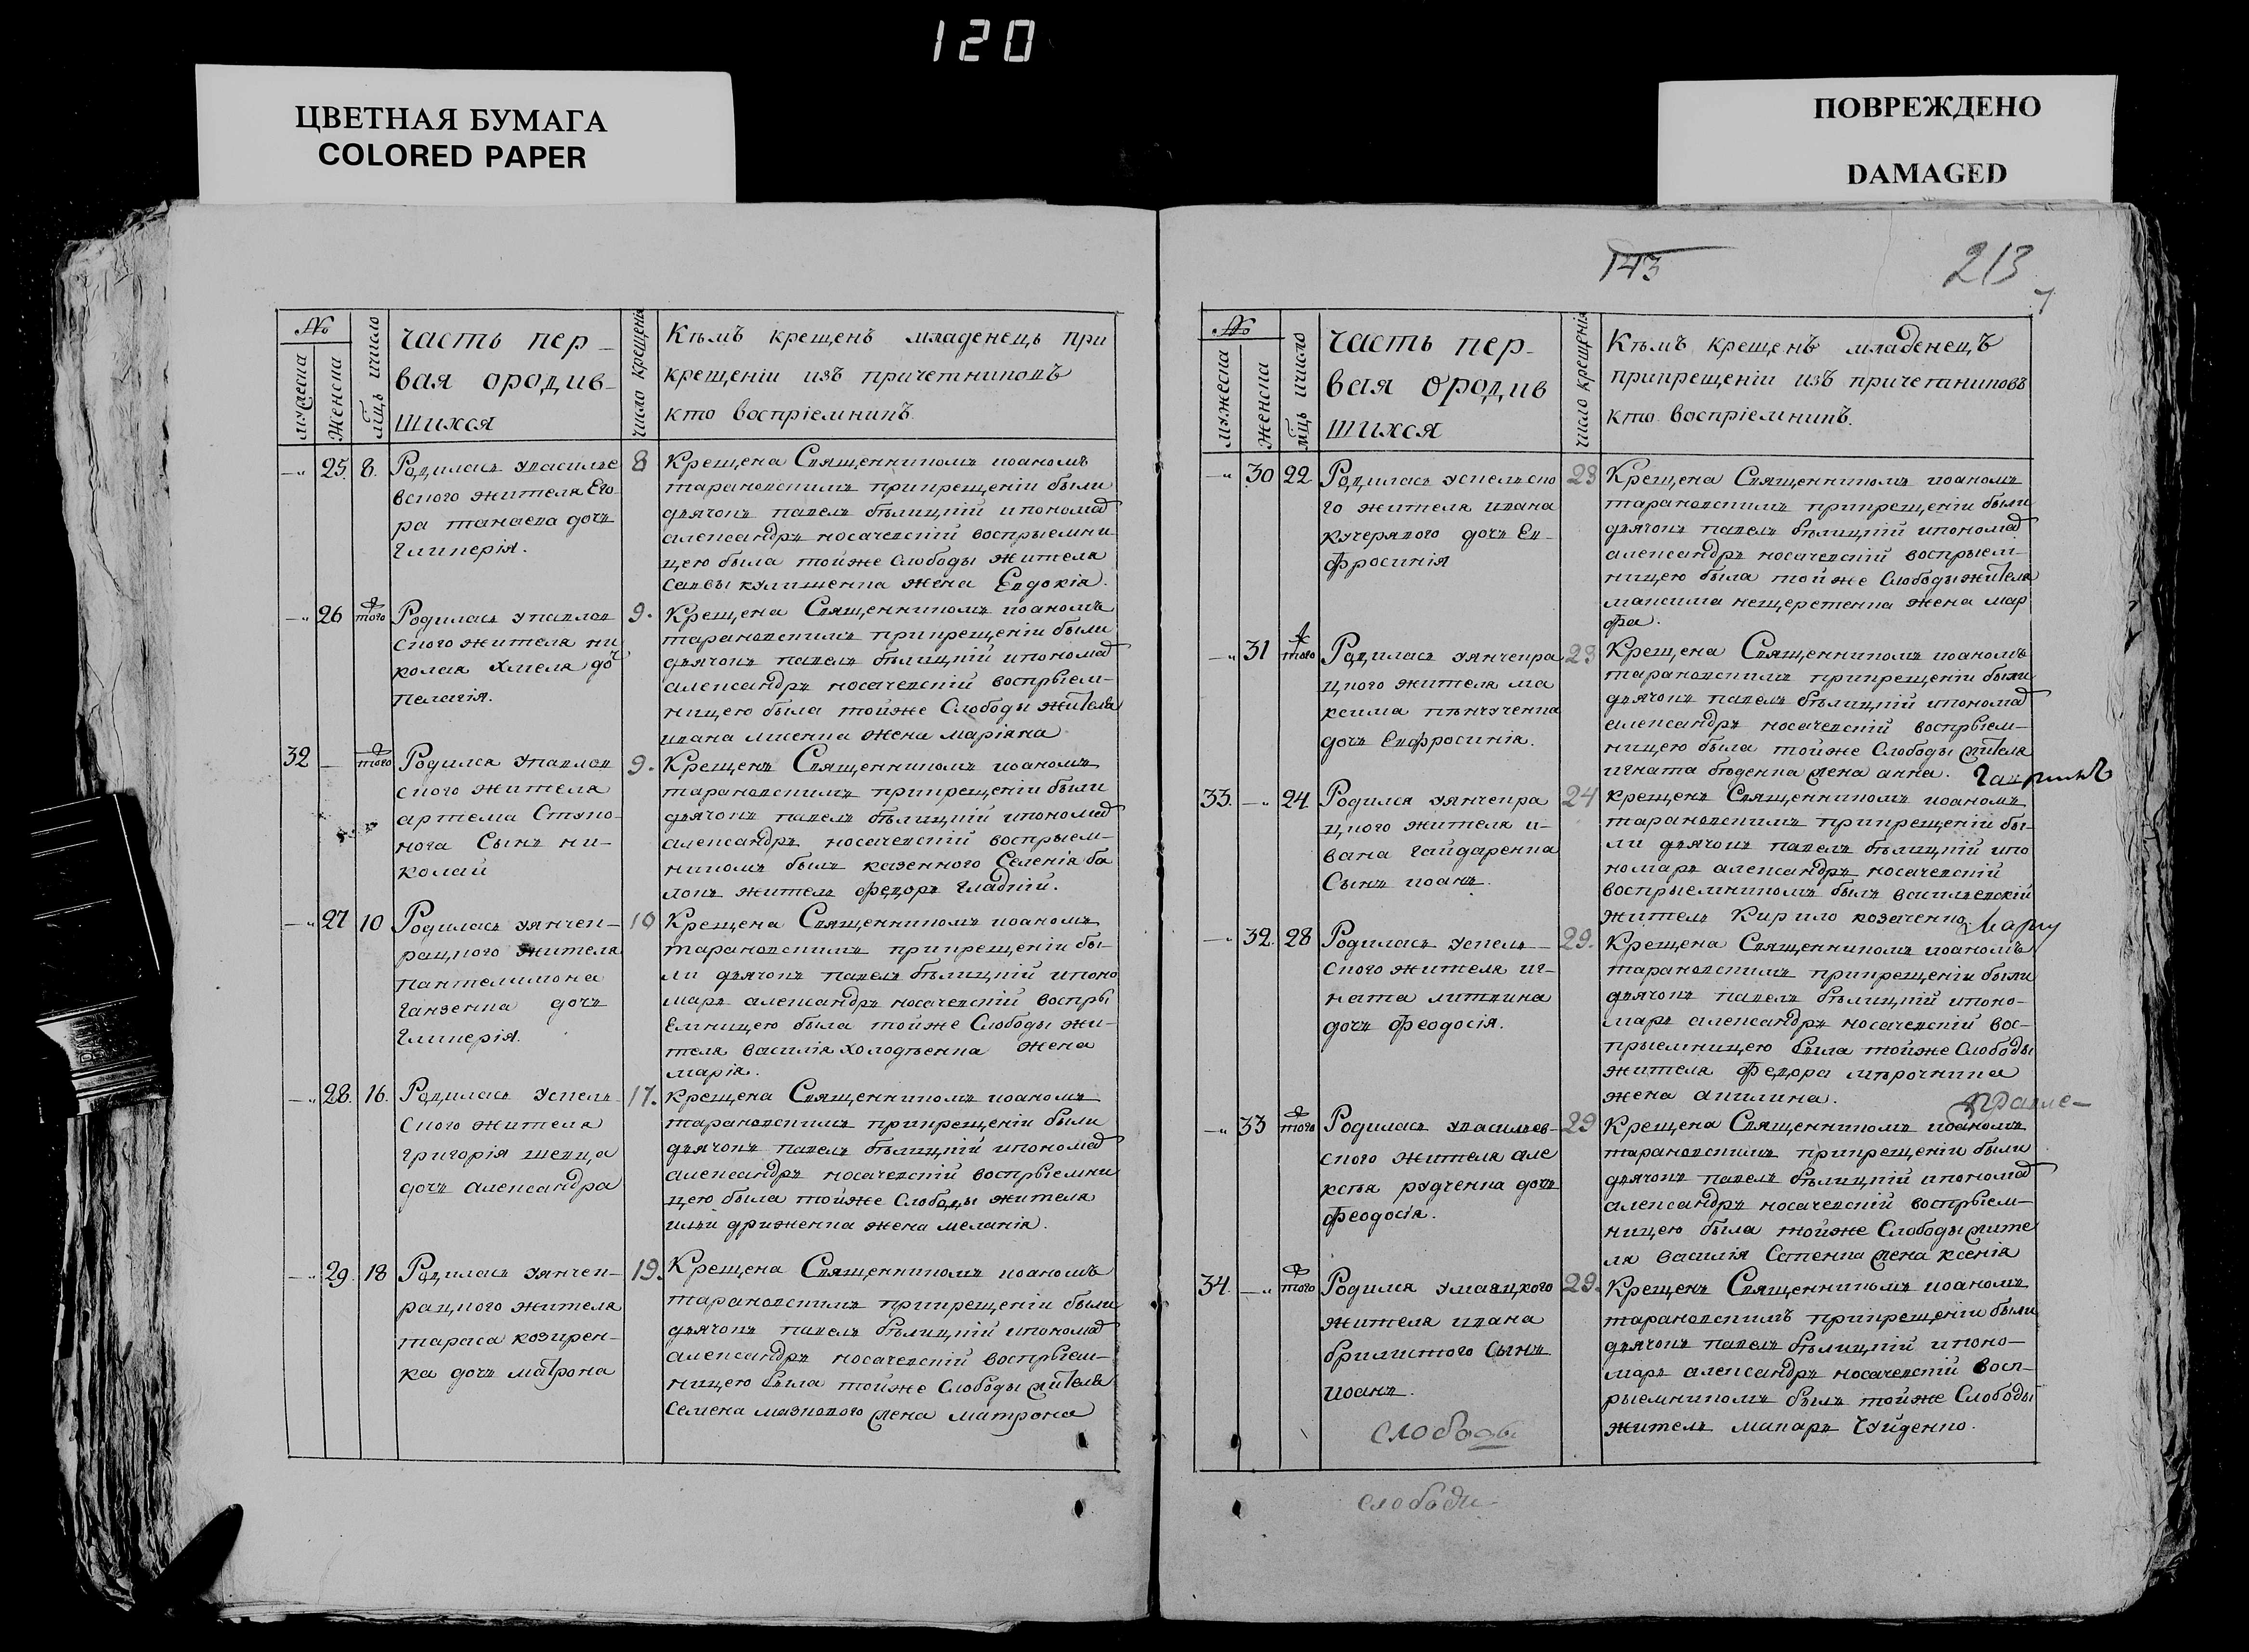 120
ЦВЕТНАЯ БУМАГА
COLORED PAPER
ПОВРЕЖДЕНО
DAMAGED
№
мужеска
Женска
мцъ ичисло
Часть пер-
вая ородив-
шихся
число крещенія
Кѣмъ крещенъ младенецъ при
крещеніи изъ причетниковъ
кто воспріемникъ.
-" 25. 8. Родилась увасилье
вского жителя Его
ра танаева дочь
Гликерія.
8 Крещена Священникомъ иоаномъ
тарановскимъ прикрещеніи были
дьячокъ павелъ бѣлицкій ипономар
александръ носачевскій воспрыемни
цею была тойже Слободы жителя
саввы кулишенка жена Евдокія.
-" 26 того Родилась упавлов
ского жителя ни
колая хмеля доч
пелагія.
9. Крещена Священникомъ иоаномъ
тарановскимъ прикрещеніи были
дьячокъ павелъ бѣлицкій ипономар
александръ носачевскій воспрыем-
ницею была тойже Слободы жителя
ивана лисенка жена маріяна
32 - того Родился упавлов
ского жителя
артема Ступо-
нога Сынъ ни-
колай
9. Крещенъ Священникомъ иоаномъ
тарановскимъ прикрещеніи были
дьячокъ павелъ бѣлицкій ипономар
александръ носачевскій воспрыем-
никомъ былъ казенного Селенія ба
локъ житель федоръ гладкій.
-" 27 10 Родилась уянчек-
рацкого жителя
пантелимона
ганзенка дочь
Гликерія.
10 Крещена Священникомъ иоаномъ
тарановскимъ прикрещеніи бы-
ли дьячокъ павелъ бѣлицкій ипоно
маръ александръ носачевскій воспры
Емницею была тойже Слободы жи-
теля василія холодѣенка жена
марія.
-" 28. 16. Родилась успель-
ского жителя
григорія шевца
дочь александра
17. Крещена Священникомъ иоаномъ
тарановскимъ прикрещеніи были
дьячокъ павелъ бѣлицкій ипономар
александръ носачевскій воспрыемни
цею была тойже Слободы жителя
ильи дриженка жена меланія.
-" 29. 18 Родилась уянчек-
рацкого жителя
тараса козирен-
ка дочь матрона
19. Крещена Священникомъ иоаномъ
тарановскимъ прикрещеніи были
дьячокъ павелъ бѣлицкій ипономар
александръ носачевскій воспрыем-
ницею была тойже Слободы жителя
Семена мазнового жена матрона
143
213
№
мужеска
женска
мцъ ичисло
Часть пер-
вая ородив
шихся
число крещенія
Кѣмъ крещенъ младенецъ
прикрещеніи изъ причетниковъ
кто воспріемникъ.
-" 30 22 Родилась успельско
го жителя ивана
кучерявого дочь Ев-
фросинія
23 Крещена Священникомъ иоаномъ
тарановскимъ прикрещеніи были
дьячокъ павелъ бѣлицкій ипономар
александръ носачевскій воспрыем-
ницею была тойже Слободы жителя
максима нещеретенка жена мар
фа.
-" 31 того Родилась уянчекра
цкого жителя ма
ксима пѣнчученка
дочь Евфросинія.
23 Крещена Священникомъ иоаномъ
тарановскимъ прикрещеніи были
дьячокъ павелъ бѣлицкій ипономар
александръ носачевскій воспрыем-
ницею была тойже Слободы жителя
игната бѣденка жена анна.
33. -" 24 Родился уянчекра
цкого жителя и-
вана гайдаренка
Сынъ иоанъ.
24 крещенъ Священникомъ иоаномъ
тарановскимъ прикрещеніи бы-
ли дьячокъ павелъ бѣлицкій ипо
номаръ александръ носачевскій
воспрыемникомъ былъ васильевскій
житель Кирило козаченко
-" 32. 28 Родилась успель-
ского жителя иг-
ната литвина
дочь феодосія.
29. Крещена Священникомъ иоаномъ
тарановскимъ прикрещеніи были
дьячокъ павелъ бѣлицкій ипоно-
маръ александръ носачевскій вос-
прыемницею была тойже Слободы
жителя федора мѣрочника
жена акилина.
-" 33 того Родилась увасильев-
ского жителя але
ксѣя рудченка дочь
феодосія.
29 Крещена Священникомъ иоаномъ
тарановскимъ прикрещеніи были
дьячокъ павелъ бѣлицкій ипономар
александръ носачевскій воспрыем-
ницею была тойже Слободы жите
ля василія Сапенка жена ксенія
34. -" того Родился умаяцкого
жителя ивана
брилистого Сынъ
иоанъ.
29. Крещенъ Священникомъ иоаномъ
тарановскимъ прикрещеніи были
дьячокъ павелъ бѣлицкій ипоно-
маръ александръ носачевскій восп-
рыемникомъ былъ тойже Слободы
житель макаръ Чуйденко.
слободы
слободи